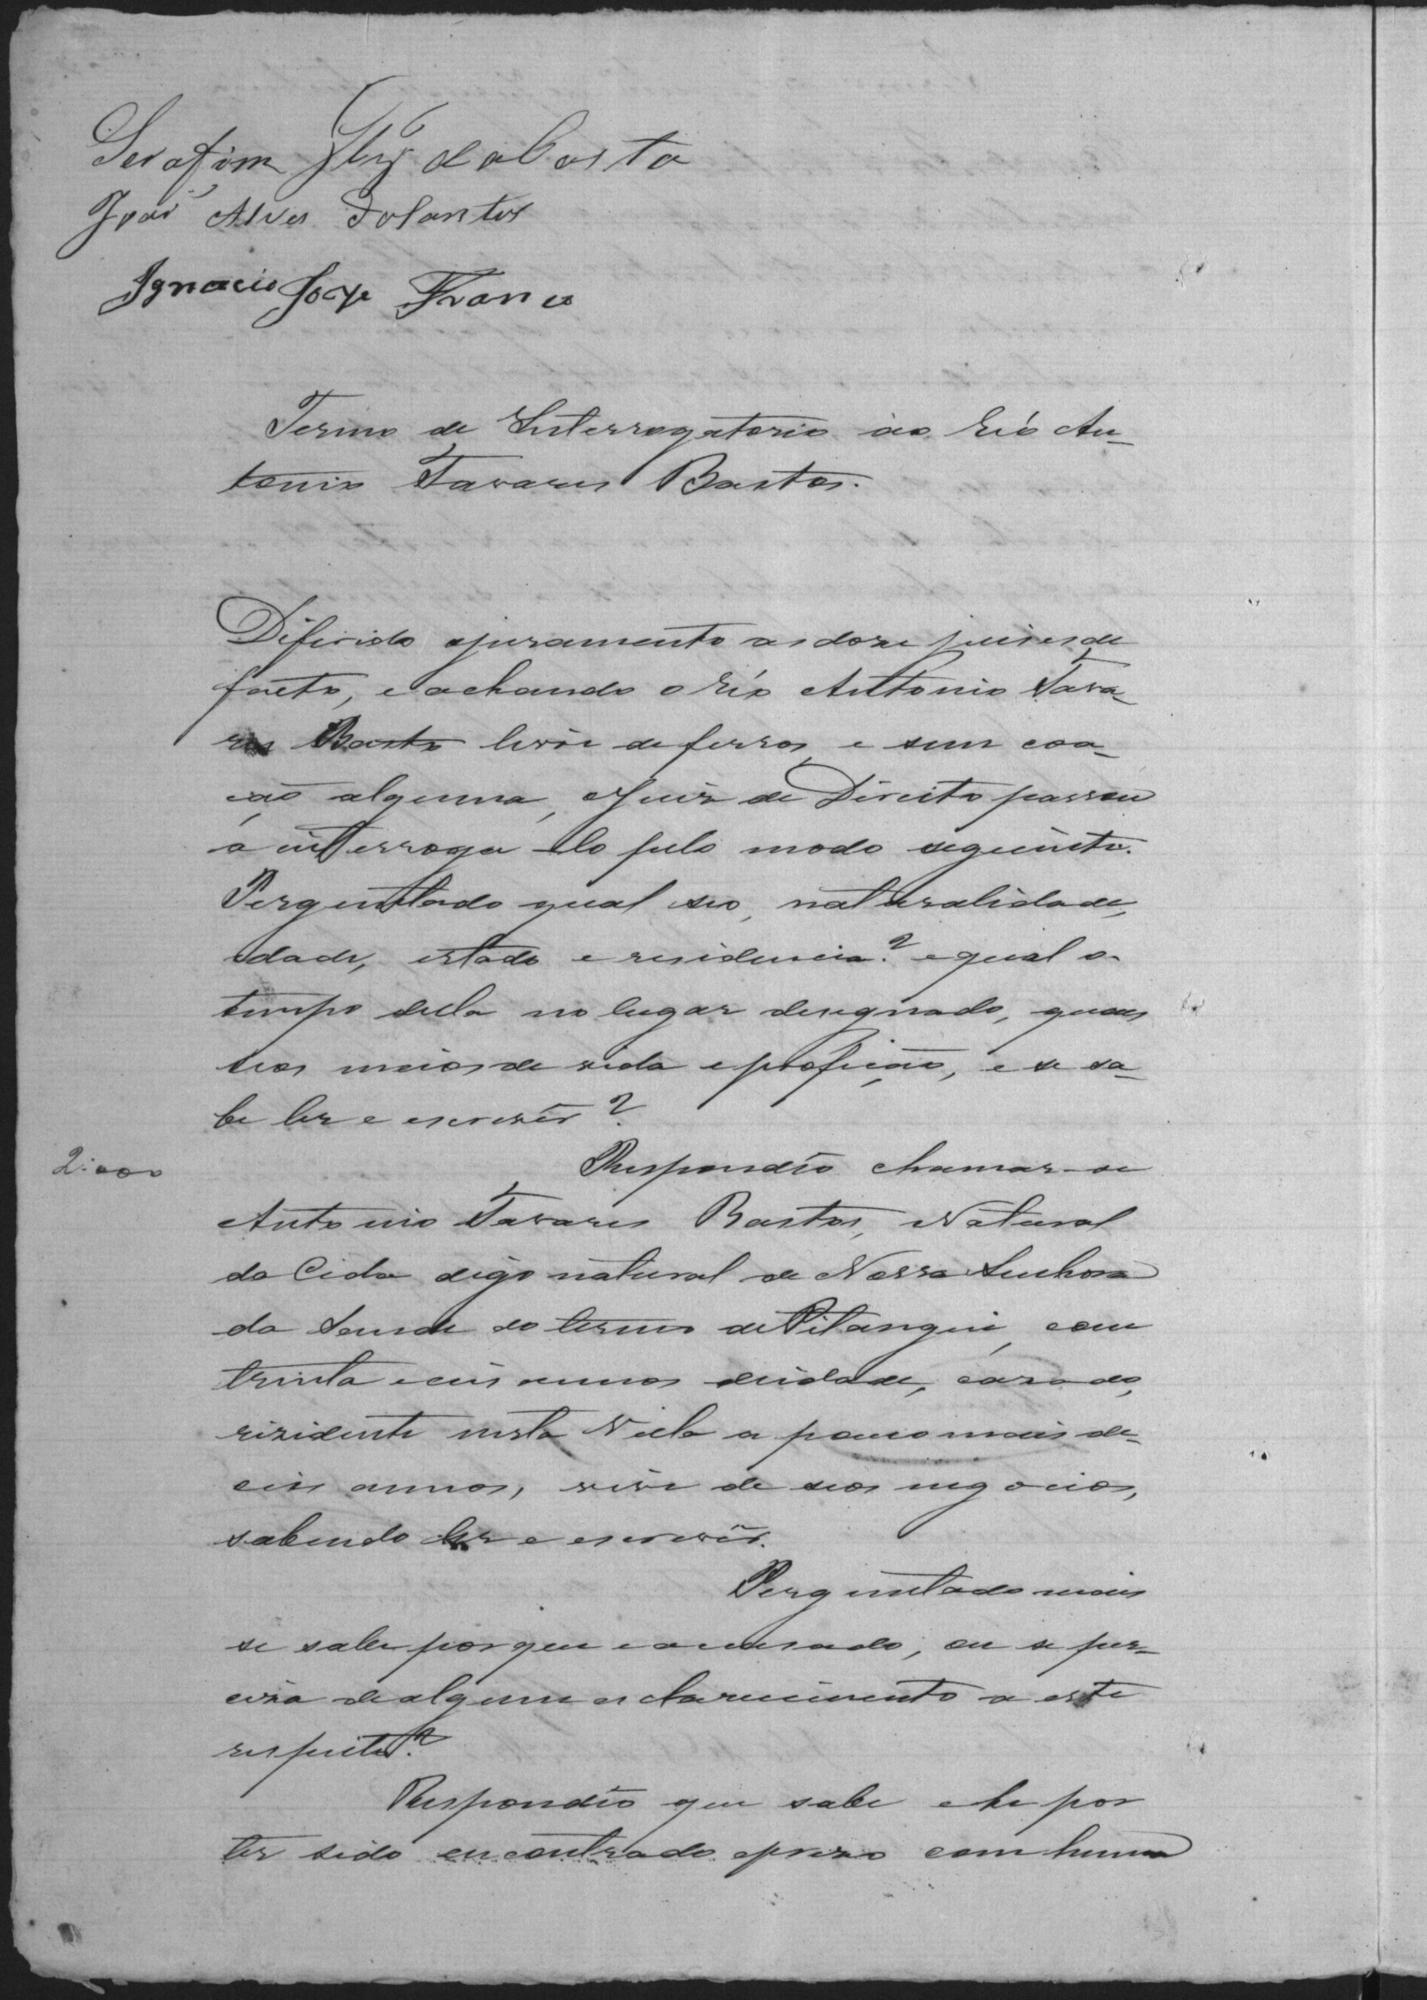 Serafim da Costa
João Alves Dos Santos
Ignacio Jorge Franco
Termo de Interrogatorio ao Réo An-
tonio Tavares Bastos.
Diferido ojuramento as doze juizes de
facto, e achando o Réo Antonio Tava-
res Basto livre de ferros e sem coa-
ção alguma, o Juiz de Direito passou
a interroga-lo pelo modo seguinte.
Perguntado qual seo, naturalidade,
idade, estado e residencia? e qual o
tempo della no lugar designado, quaes
seos meios de vida e profição, e se sa-
be ler e escrever?
2:000
Respondeo chamar-se
Antonio Tavares Bastos, Natural
da Cida digo natural de Nossa Senhora
da Saude do termo de Pitangui, com
trinta e seis annos deidade, casado,
rizidente nesta Villa a pouco mais de
seis annos, vive de seos negocios,
sabendo ler e escrever.
Perguntado mais
se sabe por que e acusado, ou se per-
ciza de algum esclarecimento a este
respeito?
Respondeo que sabe e he por
ter sido encontrado eprezo com huma